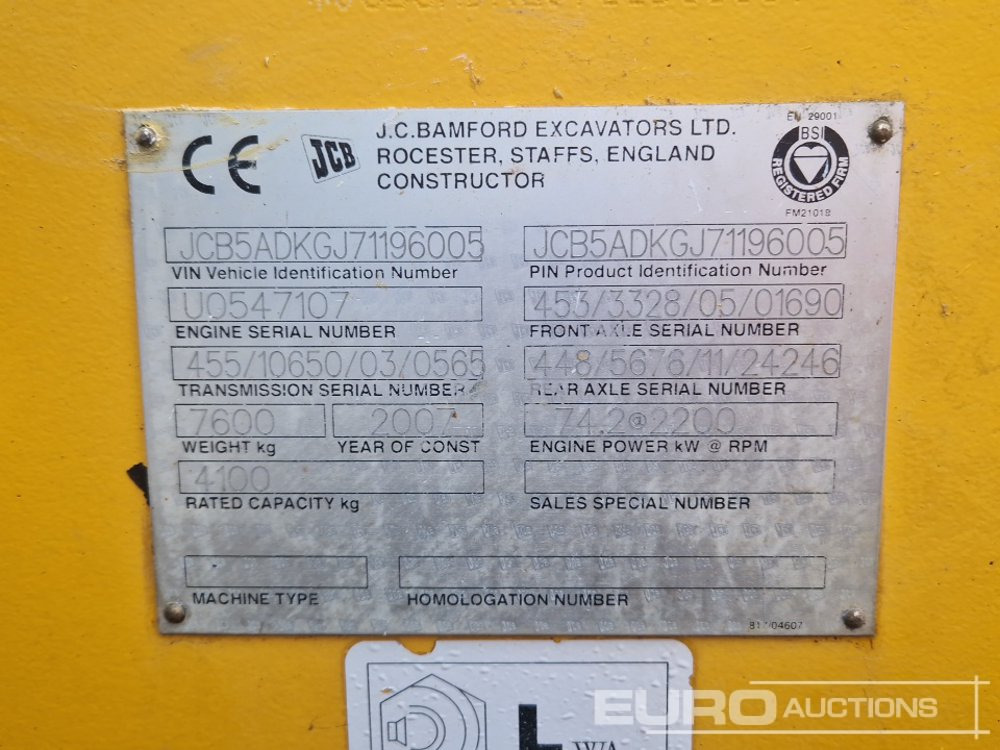 CE
JCB
J.C.BAMFORD EXCAVATORS LTD.
ROCESTER, STAFFS, ENGLAND
CONSTRUCTOR
EN 29001
BSI
REGISTERED FIRM
FM21018
JCB5ADKGJ71196005
VIN Vehicle Identification Number
JCB5ADKGJ71196005
PIN Product Identification Number
U0547107
ENGINE SERIAL NUMBER
453/3328/05/01690
FRONT AXLE SERIAL NUMBER
455/10650/03/0565
TRANSMISSION SERIAL NUMBER
448/5676/11/24246
REAR AXLE SERIAL NUMBER
7600
WEIGHT kg
2007
YEAR OF CONST
74.2@2200
ENGINE POWER kW @ RPM
4100
RATED CAPACITY kg
SALES SPECIAL NUMBER
MACHINE TYPE
HOMOLOGATION NUMBER
817/04607
EURO AUCTIONS